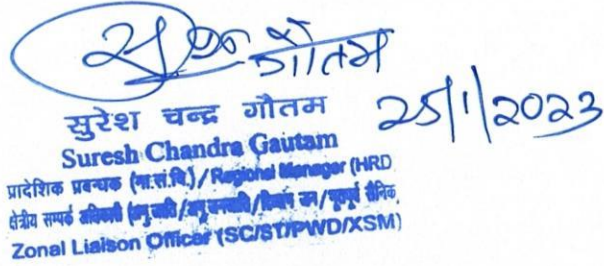 गौतम 25/1/2023
सुरेश चन्द्र गौतम
Suresh Chandra Gautam
प्रादेशिक प्रबन्धक (मा.सं.वि.)/Regional Manager (HRD
क्षेत्रीय सम्पर्क अधिकारी (अनु.जाति/अनु.जनजाति/विकलांग जन/भूतपूर्व सैनिक
Zonal Liaison Officer (SC/ST/PWD/XSM)